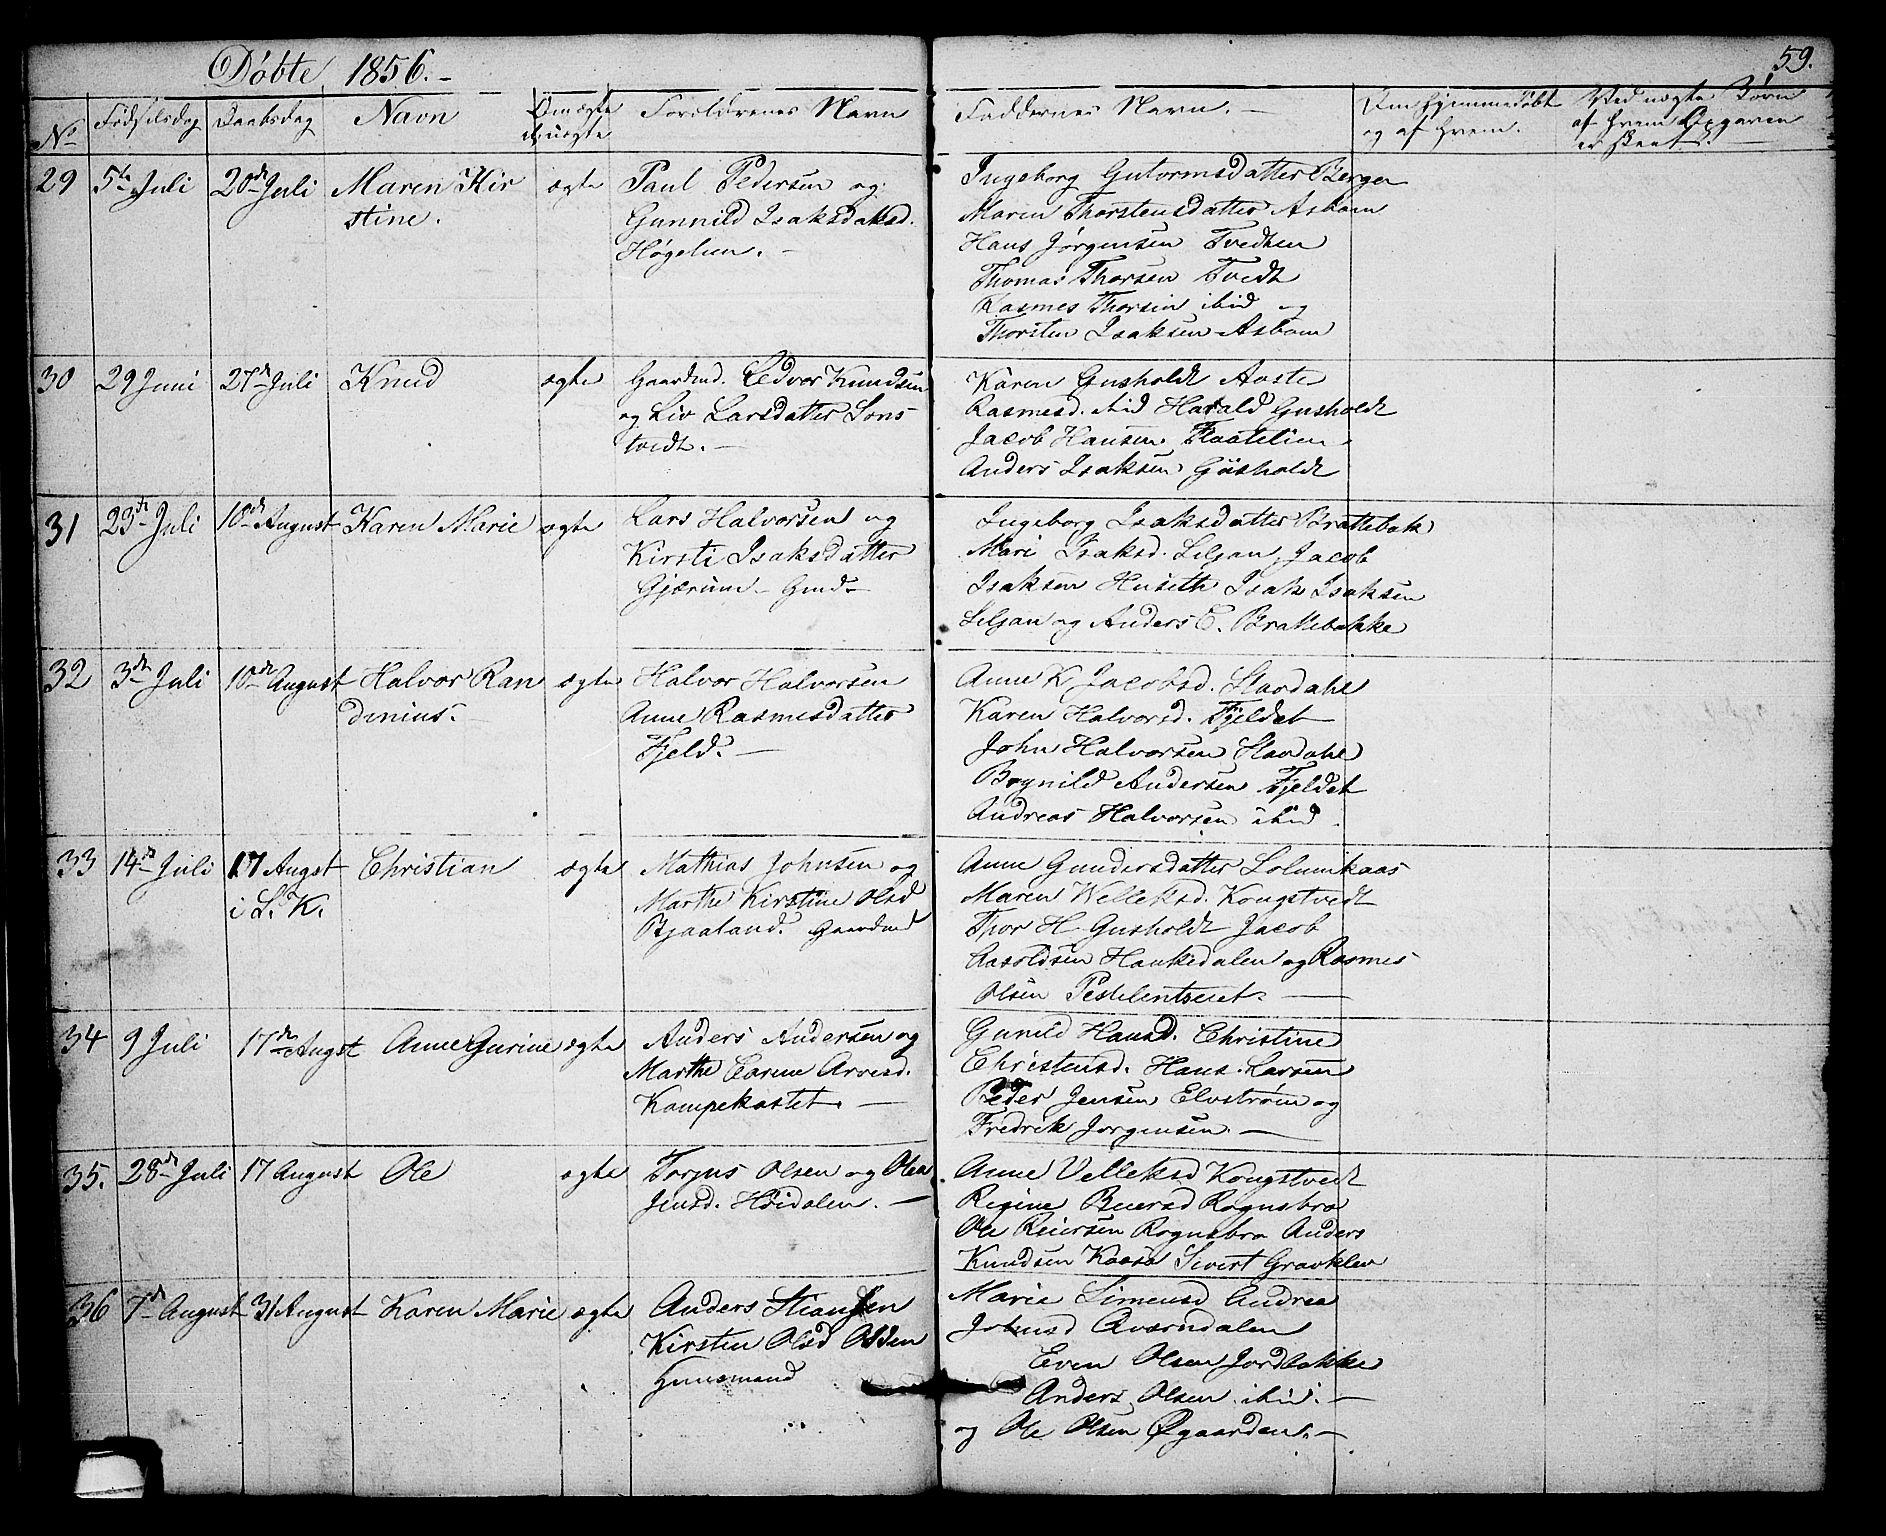 Døbte 1856.-
59.
No Fødselsdag Daabsdag Navn Om ægte el. uægte Forældrenes Navn Faddernes Navn.- Om hjemmedøbt og af hvem. Ved uægte Børn af hvem Opgaven er skeet.-
29 5te Juli 20de Juli Maren Kir ægte Paul Pedersen og
stine. Gunnild Isaksdatsd.
Høgelien.-
Ingeborg Gutormsdatter Berger
Maren Thorstensdatter Asbom
Hans Jørgensen Tvedten
Thomas Thorsen Tvedt
Rasmes Thorsin ibid og
Thorsten Isaksen Asbom
30 29 Juni 27de Juli Knud ægte Gaardmd. Ledvor Knudsen
og Liv Larsdatter Lons
tvedt.-
Karen Gusholdt Aaste
Rasmesd. ibid Harald Gusholdt
Jacob Hansen Flaatelien
Anders Isaksen Gusholdt
31 23de Juli 10de August Karen Marie ægte Lars Halvorsen og
Kirsti Isaksdatter
Gjærum - Gmd-
Ingeborg Isaksdatter Brattebak
Mari Isaksd. Liljan, Jacob
Isaksen Huseth Isak Isaksen
Liljan og Anders E. Brattebakke
32 3de Juli 10de August Halvor Ran ægte Halvor Halvorsen
dinius.- Anne Rasmesdatter
Fjeld.-
Anne K Jacobsd. Stavdahl
Karen Halvorsd. Fjeldet
John Halvorsen Stavdahl
Bognild Andersen Fjeldet
Andreas Halvorsen ibid.
33 14de Juli 17 Augst Christian ægte Mathias Johnsen og
i S. K. Marthe Kirstine Olsd
Bjaaland. Gaardmd
Anne Gundersdatter Lolumkaas
Maren Velleksd. Kongstvedt
Thor H Gusholdt Jacob
Aasoldsen Haukedalen og Rasmes
Olsen Pestelentseiet.-
34 9 Juli 17de Augst Anne Gurine ægte Anders Andersen og
Marthe Carine Arvesd.
Kampekastet.-
Gunild Hansd. Christine
Christensd. Hans Larsen
Peder Jensen Elvstrøm og
Fredrik Jørgensen.-
35. 28de Juli 17 August Ole ægte Torjus Olsen og Olea
Jensd. Høidalen.-
Anne Velleksd Kongstvedt
Regine Reiersd Rognsbro
Ole Reiersen Rognsbro Anders
Knudsen Kaasa Sivert Gravklev
36 7de August 31 August Karen Marie ægte Anders Stiansen
Kirsten Olsd Olsen
Huusmand
Marie Simensd Andrea
Johnsd Aværndalen
Even Olsen Jordbakke
Anders Olsen ibid.-
og Ole Olsen Øgaarden.-